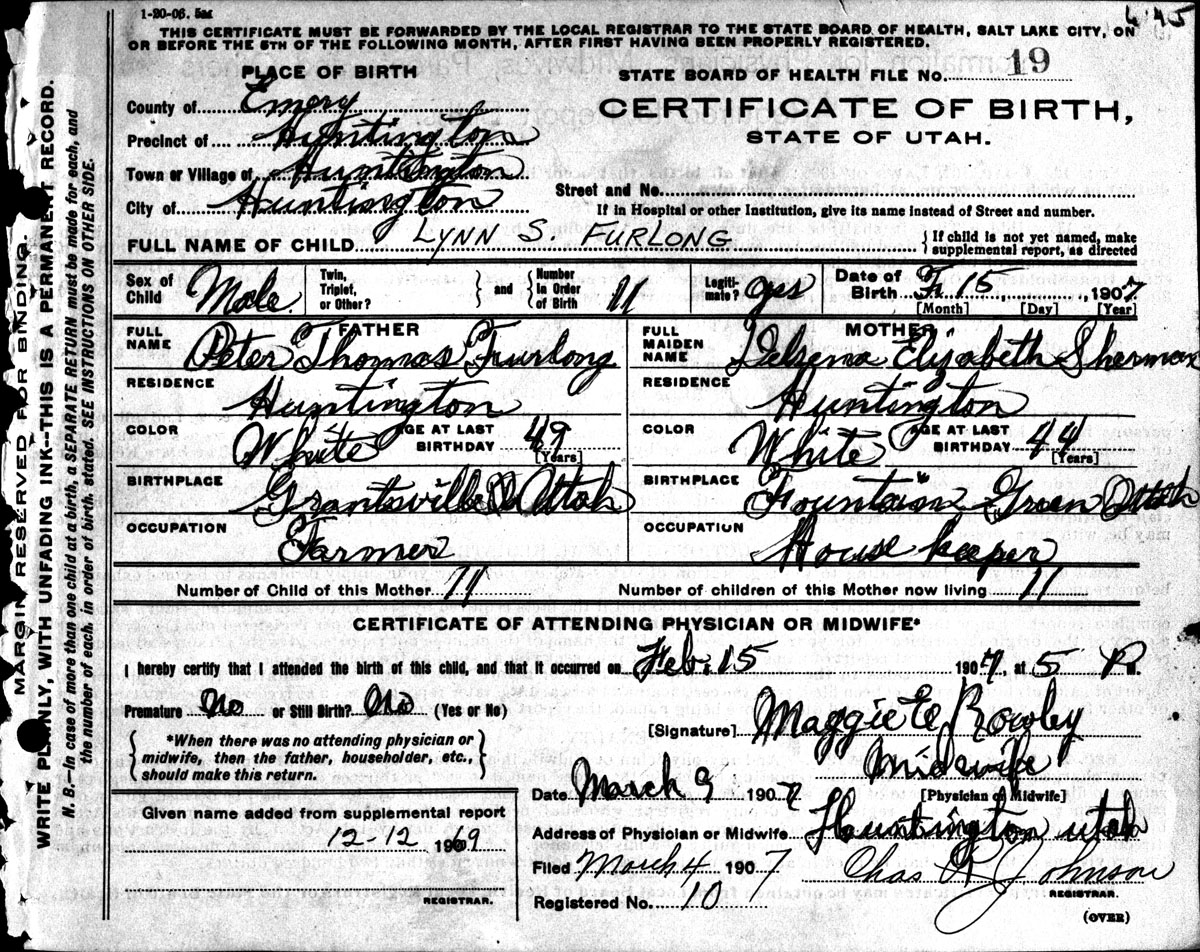 1-20-06. 5M
6 45
THIS CERTIFICATE MUST BE FORWARDED BY THE LOCAL REGISTRAR TO THE STATE BOARD OF HEALTH, SALT LAKE CITY, ON
OR BEFORE THE 5TH OF THE FOLLOWING MONTH, AFTER FIRST HAVING BEEN PROPERLY REGISTERED.
PLACE OF BIRTH
STATE BOARD OF HEALTH FILE No. 19
County of Emery
CERTIFICATE OF BIRTH,
Precinct of Huntington
STATE OF UTAH.
Town or Village of Huntington
Street and No.
City of Huntington
If in Hospital or other Institution, give its name instead of Street and number.
FULL NAME OF CHILD LYNN S. FURLONG
{ If child is not yet named, make supplemental report, as directed
Sex of Child Male
Twin, Triplet, or Other? } and { Number in Order of Birth 11
Legitimate? yes
Date of Birth F. 15, 1907
[Month] [Day] [Year]
FATHER
FULL NAME Peter Thomas Furlong
RESIDENCE Huntington
COLOR White AGE AT LAST BIRTHDAY 49 [Years]
BIRTHPLACE Grantsville Utah
OCCUPATION Farmer
MOTHER
FULL MAIDEN NAME Delsena Elizabeth Sherman
RESIDENCE Huntington
COLOR White AGE AT LAST BIRTHDAY 44 [Years]
BIRTHPLACE Fountain Green Utah
OCCUPATION House keeper
Number of Child of this Mother 11 Number of children of this Mother now living 11
CERTIFICATE OF ATTENDING PHYSICIAN OR MIDWIFE*
I hereby certify that I attended the birth of this child, and that it occurred on Feb. 15 1907, at 5 P.
Premature No or Still Birth? No (Yes or No)
{ *When there was no attending physician or midwife, then the father, householder, etc., should make this return. }
[Signature] Maggie E Rowley
Midwife
[Physician or Midwife]
Date March 9 1907
Address of Physician or Midwife Huntington utah
Filed March 4 1907 Chas R Johnson
REGISTRAR.
Registered No. 10
(OVER)
Given name added from supplemental report
12-12 1969
REGISTRAR.
MARGIN RESERVED FOR BINDING.
WRITE PLAINLY, WITH UNFADING INK--THIS IS A PERMANENT RECORD.
N. B.--In case of more than one child at a birth, a SEPARATE RETURN must be made for each, and
the number of each, in order of birth, stated. SEE INSTRUCTIONS ON OTHER SIDE.